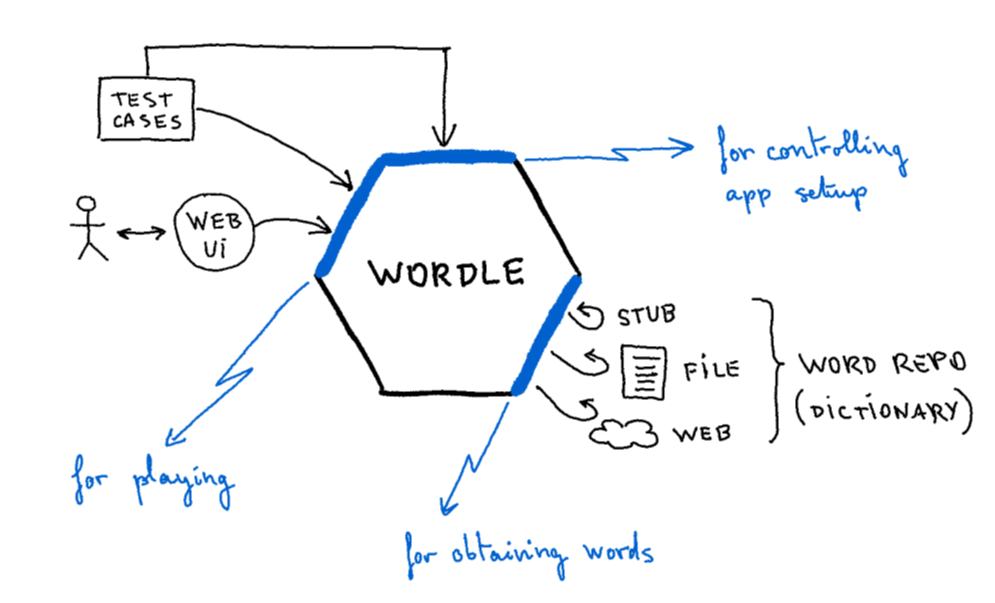 TEST
CASES
for controlling
app setup
WEB
Ui
WORDLE
STUB
FiLE
WORD REPO
(DiCTiONARY)
WEB
for playing
for obtaining words